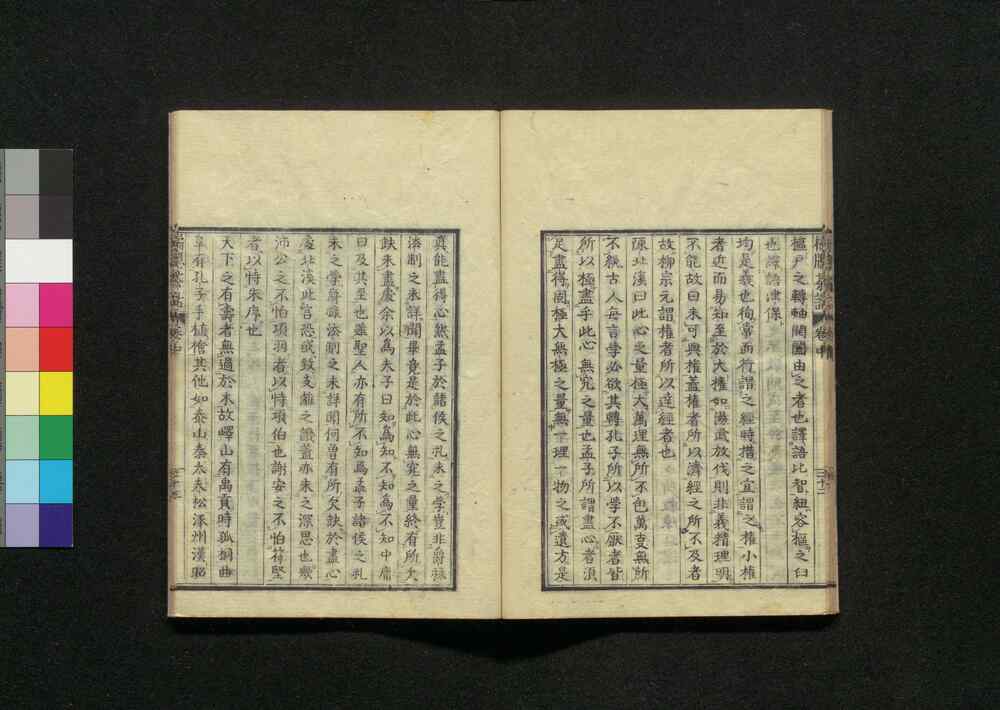 樞戶之轉軸開闔由之者也譯語比智紐容樞之臼
也譯語
均是義也徇常而行謂之經時措之宜謂之權小權
者近而易知至於大權如湯武放伐則非義精理明
不能故曰未可與權蓋權者所以濟經之所不及者
故柳宗元謂權者所以達經者也
陳北溪曰此心之量極大萬理無所不包萬事無所
不統古人每言學必欲其博孔子所以學不厭者皆
所以極盡乎此心無窮之量也孟子所謂盡心者須
是盡得箇極大無極之量無一理一物之或遺方是
真能盡得心然孟子於諸侯之禮未之學豈非爵祿
法制之未詳聞畢竟是於此心無窮之量終有所欠
缺未盡處余以爲夫子曰知爲知不知爲不知中庸
曰及其至也雖聖人亦有所不知焉孟子諸侯之禮
未之學爵祿法制之未詳聞何曾有所欠缺於盡心
處北溪此言恐或致支離之譏蓋亦未之深思也歟
沛公之不怕項羽者以特項伯也謝安之不怕苻堅
者以恃朱序也
天下之有壽者無過於木故嶧山有禹貢時孤桐曲
阜有孔子手植檜其他如泰山秦大夫松涿州漢昭